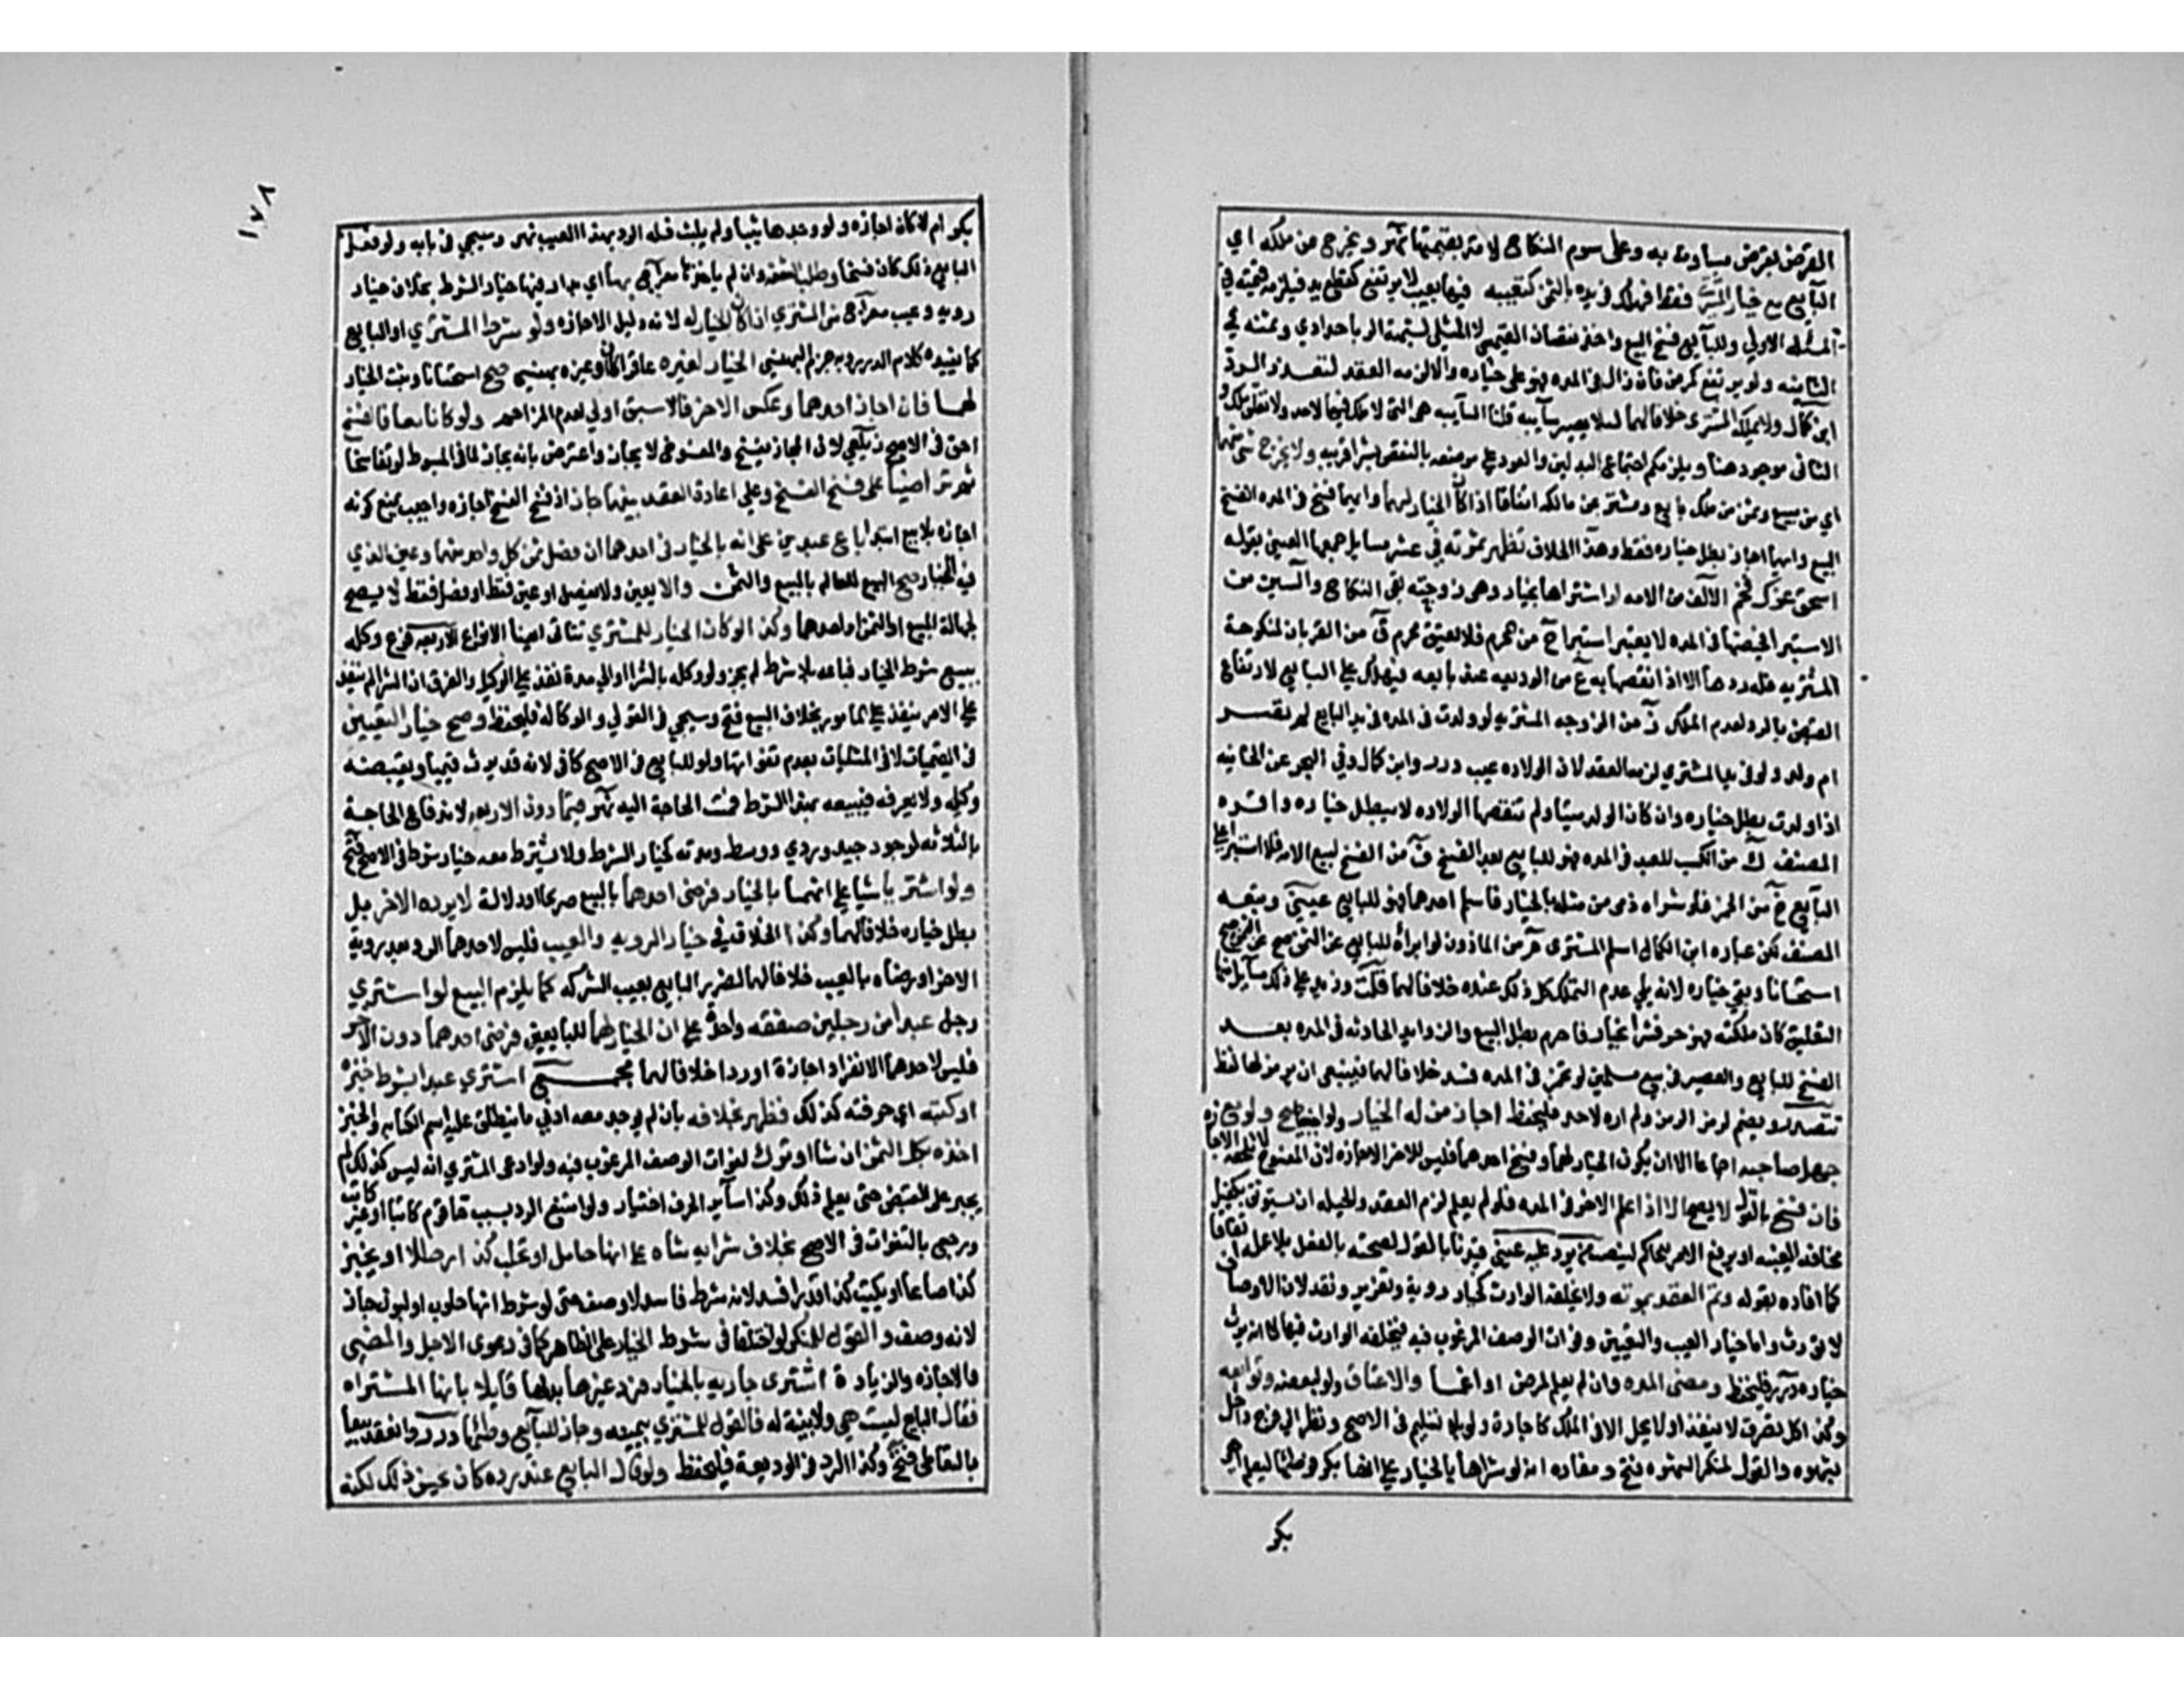 القرض بقرض مساومة به وعلى سوم النكاح لا من بقيمتها نهر ويخرج عن ملكه اي
البايع مع خيار المشتري فقط فهلك في يده بالثمن كتعيبه فيها بعيب لا يرتفع كقطع يد فيلزمه قيمته في
المسئلة الاولى وللبايع فسخ البيع واخذ نقصان القيمي لا المثلي لشبهة الربا حدادي وثمنه في
الثانية ولو يرتفع كمرض فان زال في المدة فهو على خياره والا لزمه العقد لتعذر الرد
ابن كمال ولا يملكه المشتري خلافا لهما لئلا يصير سايبه قلنا السايبه هي التي لا ملك فيها لاحد ولا تعلق ملك و
الثاني موجود هنا ويلزمكم اجتماع البدلين والعود على موضوعه بالنقض بشرا قريبه ولا يخرج شئ منهما
اي من مبيع وثمن من ملك بايع ومشتر عن مالكه اتفاقا اذا كان الخيار لهما وايهما فسخ في المدة انفسخ
البيع وايهما اجاز بطل خياره فقط وهذا الخلاف تظهر ثمرته في عشر مسايل جمعها العيني بقوله
اسحق عزك فخم الالف من الامه لو اشتراها بخيار وهي زوجته بقي النكاح والسين من
الاستبرا فحيضها في المدة لا يعتبر استبرا ح من محرم فلا يعتق محرم ق من القربان لمنكوحة
المشتريه فله ردها الا اذا نقصها به ع من الوديعه عند بايعه فيهلك على البايع لارتفاع
القبض بالرد لعدم الملك ز من الزوجه المشتريه لو ولدت في المدة في يد البايع لم تصر
ام ولد ولو في يد المشتري لزم العقد لان الولاده عيب درر وابن كمال وفي البحر عن الخانيه
اذا ولدت بطل خياره وان كان الولد ميتا ولم تنقصها الولاده لا يبطل خياره واقره
المصنف ك من الكسب للعبد في المدة فهو للبايع بعد الفسخ ف من الفسخ لبيع الامه فلا استبرا على
البايع خ من الخمر فلو شراه ذمي من مثله بالخيار فاسلم احدهما فهو للبايع عيني وتبعه
المصنف لكن عبارة ابن الكمال اسلم المشتري م من الماذون لو ابراه البايع عن الثمن صح
استحسانا وبقي خياره لانه يلي عدم التملك كل ذلك عنده خلافا لهما قلت وزيد على ذلك مسايل منها
التعليق كان ملكته فهو حر فشراه بخيار فاحرم بطل البيع والزوايد الحادثه في المدة بعد
الفسخ للبايع والعصير في بيع مسلمين لو تخمر في المدة فسد خلافا لهما فينبغي ان يرمز لها لفظ
تتصدر ويضم لرمز الرمز ولم اره لاحد فليحفظ اجاز من له الخيار ولو مع
جهل صاحبه اجماعا الا ان يكون الخيار لهما وفسخ احدهما فليس للاخر الاجازه لان المفسوخ لا تلحقه الاجازه
فان فسخ بالقول لا يصح الا اذا علم الاخر في المدة فلو لم يعلم لزم العقد والحيله ان يستوثق بكفيل
مخافة الغيبه او يرفع الامر للحاكم لينصب من يرد عليه عيني قيدنا بالقول لصحته بالفعل بلا علمه اتفاقا
كما افاده بقوله وتم العقد بموته ولا يخلفه الوارث كخيار روية وتغرير ونقد لان الاوصاف
لا تورث واما خيار العيب والتعيين وفوات الوصف المرغوب فيه فيخلفه الوارث فيها لا انه يورث
خياره درر فليحفظ ومضي المدة وان لم يعلم لمرض او اغما والاعتاق ولو لبعضه وتوابعه
وكذا كل تصرف لا ينفذ او لا يحل الا في الملك كاجارة ولو بلا تسليم في الاصح ونظر الى فرج داخل
بشهوه والقول لمنكر الشهوه فتح ومفاده انه لو شراها بالخيار على انها بكر فوطئها ليعلم اهي
بكر
١٧٨
بكر ام لا كان اجازه ولو وجدها ثيبا ولم يلبث فله الرد بهذا العيب نهر وسيجي في بابه ولو فعل
البايع ذلك كان فسخا وطلب الشفعه وان لم ياخذها معراج بها اي بدار فيها خيار الشرط بخلاف خيار
رويه وعيب معراج من المشتري اذا كان الخيار له لانه دليل الاجازه ولو شرط المشتري او البايع
كما يفيده كلام الدرر وبه جزم البهنسي الخيار لغيره عاقدا كان او غيره بهنسي صح استحسانا وثبت الخيار
لهما فان اجاز احدهما وعكس الاخر فالاسبق اولى لعدم المزاحم ولو كانا معا فالفسخ
احق في الاصح زيلعي لان المجاز يفسخ والمفسوخ لا يجاز واعترض بانه يجاز لما في المبسوط لو تفاسخا
ثم تراضيا على فسخ الفسخ وعلى اعادة العقد بينهما جاز اذ فسخ الفسخ اجازه واجيب بمنع كونه
اجازه بل بيع ابتدا باع عبدين على انه بالخيار في احدهما ان فصل ثمن كل واحد منهما وعين الذي
فيه الخيار صح البيع للعلم بالمبيع والثمن والا يعين ولا يفصل او عين فقط او فصل فقط لا يصح
لجهالة المبيع او الثمن او احدهما وكذا لو كان الخيار للمشتري تتاتى ايضا الانواع الاربعه فرع وكله
ببيع شرط الخيار فباعه بلا شرط لم يجز ولو وكله بالشرا والمسئلة بحالها نفذ على الوكيل والفرق ان الشرا لم ينفذ
على الامر ينفذ على المامور بخلاف البيع فتح وسيجي في الفضولي والوكالة فليحفظ وصح خيار التعيين
في القيميات لا في المثليات لعدم تفاوتها ولو للبايع في الاصح كافي لانه قد يرث قيميا ويقبضه
وكيله ولا يعرفه فيبيعه بهذا الشرط فمست الحاجة اليه نهر فيما دون الاربعه لاندفاع الحاجة
بالثلاثه لوجود جيد وردي ووسط ومدته كخيار الشرط ولا يشترط معه خيار شرط في الاصح فتح
ولو اشتريا شيا على انهما بالخيار فرضي احدهما بالبيع صريحا او دلالة لا يرده الاخر بل
بطل خياره خلافا لهما وكذا الخلاف في خيار الرويه والعيب فليس لاحدهما الرد بعد روية
الاخر او رضاه بالعيب خلافا لهما لضرر البايع بعيب الشركه كما يلزم البيع لو اشترى
رجل عبدا من رجلين صفقه واحدة على ان الخيار لهما للبايعين فرضي احدهما دون الاخر
فليس لاحدهما الانفراد اجازة او ردا خلافا لهما مجمع اشترى عبدا بشرط خبزه
او كتبه اي حرفته كذلك فظهر بخلافه بان لم يوجد معه ادنى ما ينطلق عليه اسم الكتابه والخبز
اخذه بكل الثمن ان شا او تركه لفوات الوصف المرغوب فيه ولو ادعى المشتري انه ليس كذلك لم
يجبر على القبض حتى يعلم ذلك وكذا ساير الحرف اختيار ولو امتنع الرد بسبب ما قوم كاتبا وغير كاتب
ورجع بالتفاوت في الاصح بخلاف شرايه شاة على انها حامل او تحلب كذا رطلا او يخبز
كذا صاعا او يكتب كذا قدرا فسد لانه شرط فاسد لا وصف حتى لو شرط انها حلوب او لبون جاز
لانه وصف والقول للمنكر لو اختلفا في شرط الخيار على الظاهر كما في دعوى الاجل والمضي
والاجازه والزيادة اشترى جاريه بالخيار فرد غيرها بدلها قايلا بانها المشتراه
فقال البايع ليست هي ولا بينة له فالقول للمشتري بيمينه وجاز للبايع وطئها درر وانعقد بيعا
بالتعاطي فتح وكذا الرد في الوديعة فليحفظ ولو قال البايع عند رده كان يحسن ذلك لكنه